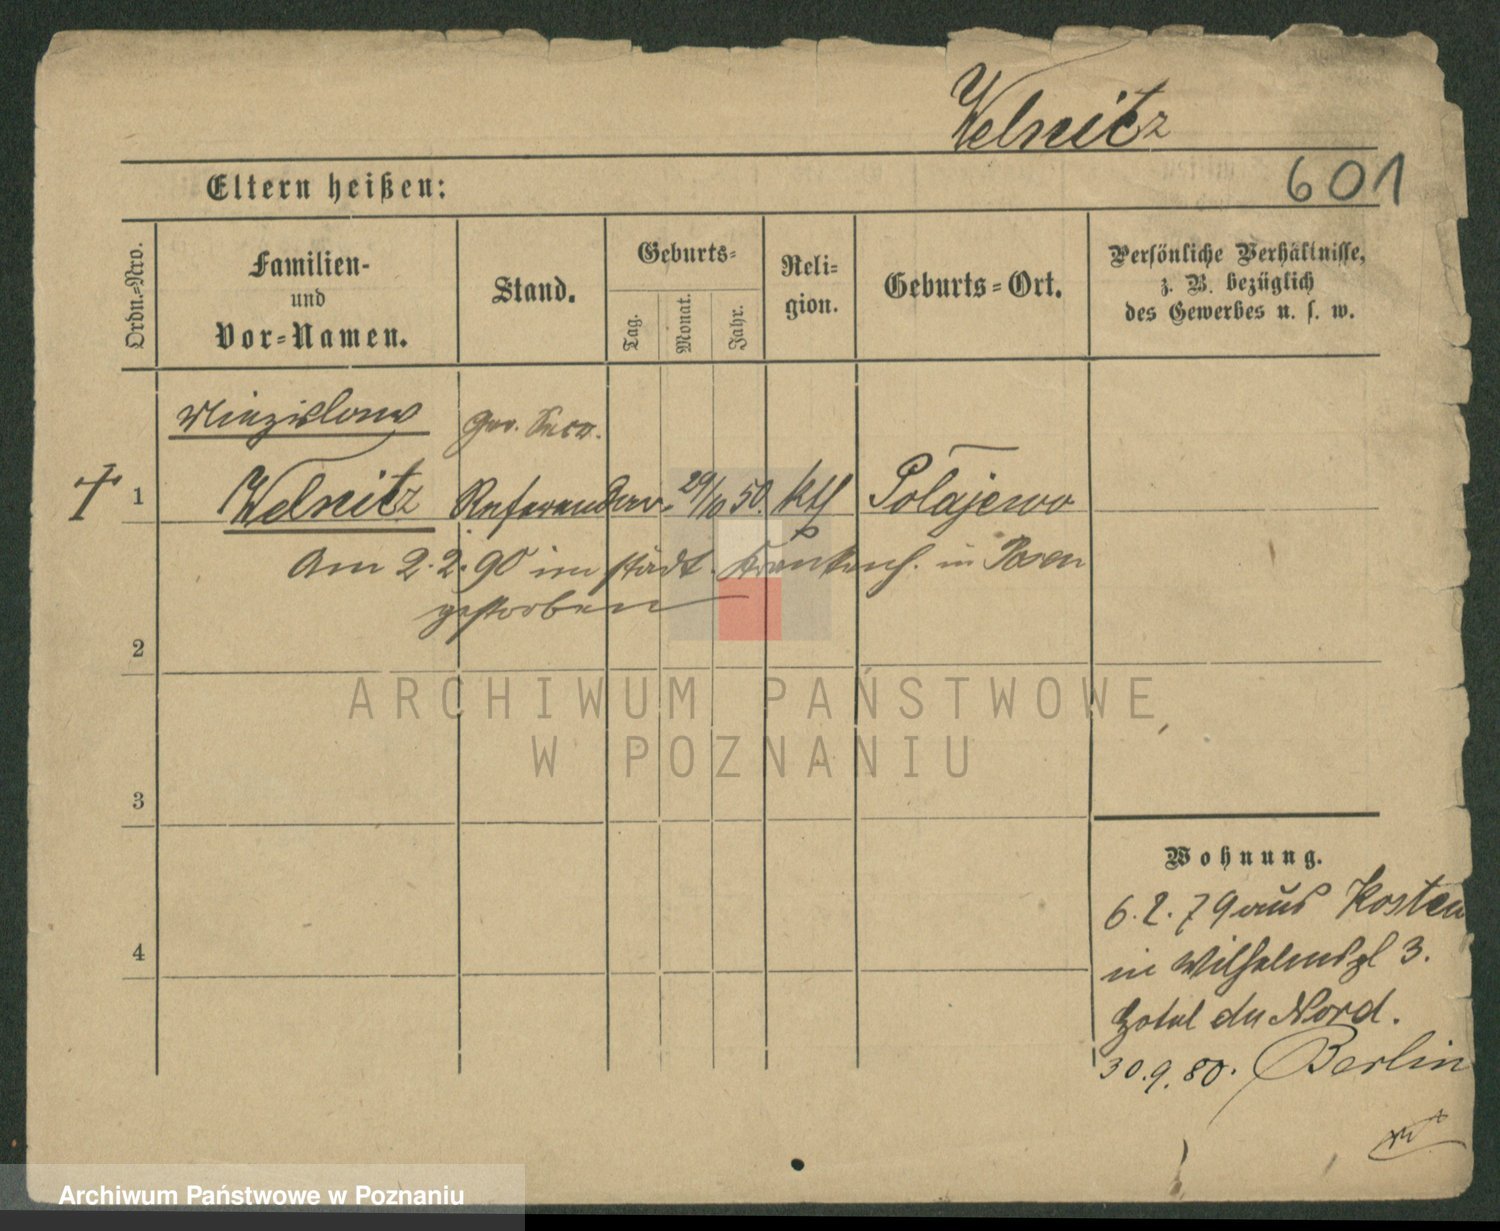 Welnitz
601
Eltern heißen:
Ordn.-Nro.
Familien-
und
Vor-Namen.
Stand.
Geburts-
Tag.
Monat.
Jahr.
Reli-
gion.
Geburts-Ort.
Persönliche Verhältnisse,
z. B. bezüglich
des Gewerbes u. s. w.
Miezislaw
1
Welnitz Referendar. 29/10 50. kth Polajewo
Am 2.2.90 im städt. Krankenh. in Posen
gestorben
2
3
4
Wohnung.
6.2.79 aus Kosten
in Wilhelmspl 3.
Hotel du Nord.
30.9.80. Berlin
ARCHIWUM PAŃSTWOWE
W POZNANIU
Archiwum Państwowe w Poznaniu